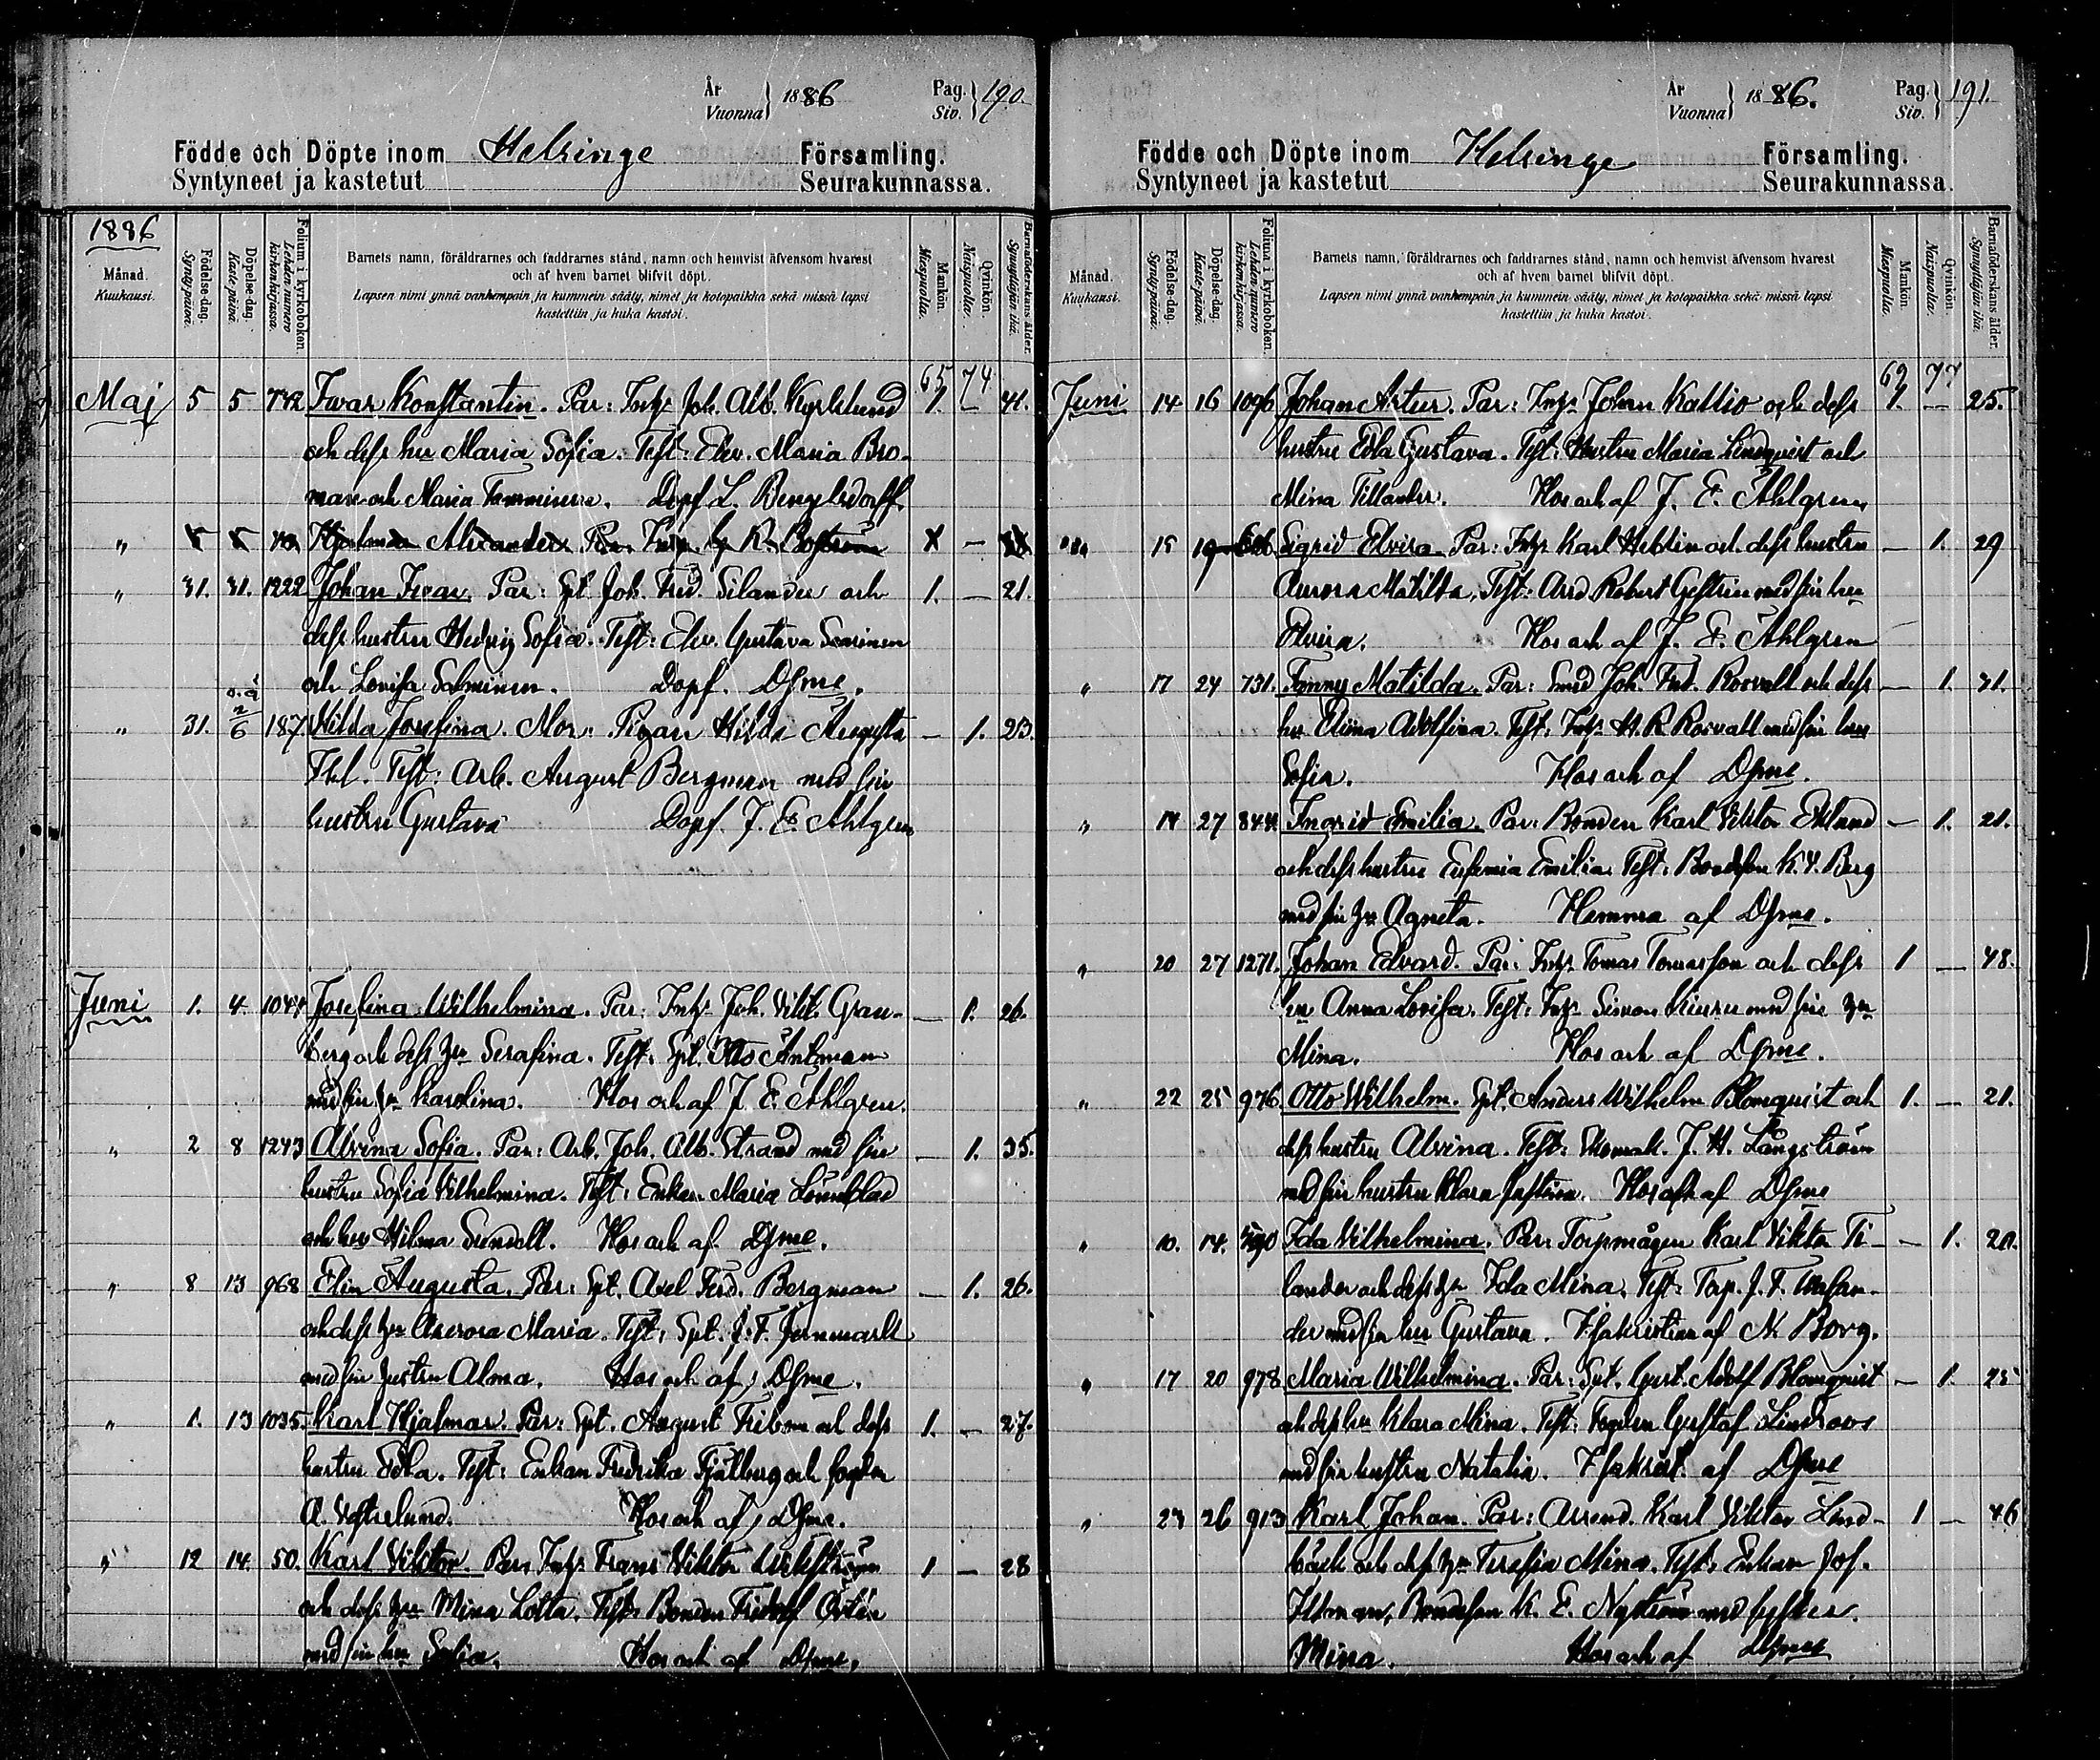 År
Vuonna } 1886
Pag.
Siv. } 190.
Födde och Döpte inom Helsinge Församling.
Syntyneet ja kastetut Seurakunnassa.
1886
Månad.
Kuukausi.
Födelse-dag.
Syntypäivä.
Döpelse-dag.
Kaste-päivä.
Folium i kyrkoboken.
Lehden numero kirkonkirjassa.
Barnets namn, föräldrarnes och faddrarnes stånd, namn och hemvist äfvensom hvarest
och af hvem barnet blifvit döpt.
Lapsen nimi ynnä vanhempain ja kummein sääty, nimet ja kotopaikka sekä missä lapsi
kastettiin ja kuka kastoi.
Mankön.
Miespuolia.
Qvinkön.
Naispuolia.
Barnaföderskans ålder.
Synnyttäjän ikä.
65 74
Maj 5 5 742 Ivar Konstantin. Par: Inhs Joh. Alb. Kyrklund 1. — 41.
och dess hu Maria Sofia. Test: Elev. Maria Bro-
man och Maria Tamminen. Döpt L. Bengelsdorff.
" 5 5 Hjalmar Alexander Par. Inhs R. Boström —
" 31. 31. 1222 Johan Ivar. Par: Spt. Joh. Fred. Silander och 1. — 21.
dess hustru Hedvig Sofia. Test: Elev. Gustava Saarinen
och Lovisa Salminen. Döpt. Dsme.
" 31. 2/6 187. Hilda Josefina. Mor: Pigan Hilda Augusta — 1. 23.
Test: Arb. August Bergman med sin
hustru Gustava Döpt. J. E. Ahlgren
Juni 1. 4 1044 Josefina Wilhelmina. Par: Inhs Joh. Vikt. Gran- — 1. 26.
berg och dess hu Serafina. Test: Spt. Otto Antman
med sin hu Karolina. Hos och af J. E. Ahlgren.
" 2 8 1243 Alvina Sofia. Par: Arb. Joh. Alb. Strand med sin — 1. 35.
hustru Sofia Vilhelmina. Test: Enkan Maria Lönnblad
och hu Hilma Sundell. Hos och af Dsme.
" 8 13 968 Elin Augusta. Par: Spt. Axel Ferd. Bergman — 1. 26.
och dess hu Aurora Maria. Test: Spt. J. F. Jernmark
med sin hustru Alma. Hos och af Dsme.
" 1. 13 1035. Karl Hjalmar. Par: Spt. August Fribom och dess 1. — 27.
hustru Edla. Test: Enkan Fredrika Fjälberg och fogden
A. Hos och af Dsme.
" 12 14. 50. Karl Viktor. Par: Inhs Frans Viktor 1 — 28
och dess hu Mina Lotta. Test: Bonden Fridolf Östen
med sin hu Sofia. Hos och af Dsme.
År
Vuonna } 1886.
Pag.
Siv. } 191.
Födde och Döpte inom Helsinge Församling.
Syntyneet ja kastetut Seurakunnassa.
Månad.
Kuukausi.
Födelse-dag.
Syntypäivä.
Döpelse-dag.
Kaste-päivä.
Folium i kyrkoboken.
Lehden numero kirkonkirjassa.
Barnets namn, föräldrarnes och faddrarnes stånd, namn och hemvist äfvensom hvarest
och af hvem barnet blifvit döpt.
Lapsen nimi ynnä vanhempain ja kummein sääty, nimet ja kotopaikka sekä missä lapsi
kastettiin ja kuka kastoi.
Mankön.
Miespuolia.
Qvinkön.
Naispuolia.
Barnaföderskans ålder.
Synnyttäjän ikä.
69 77
Juni 14 16 1096 Johan Artur. Par: Inhs Johan Kallio och dess 1. — 25.
hustru Edla Gustava. Test: Hustru Maria Lindqvist och
Mina Tillander. Hos och af J. E. Ahlgren
" 15 19 Sigrid Elvira. Par: Inhs Karl Heldin och dess hustru — 1. 29
Aurora Matilda. Test: Arrd Robert Gestrin med sin hu
Elvira. Hos och af J. E. Ahlgren
" 17 24 731. Fanny Matilda. Par: Smed Joh. Fred. Rosvall och dess — 1. 31.
hu Elima Adolfina. Test: Inhs H. R. Rosvall med sin hu
Sofia. Hos och af Dsme.
" 14 27 844. Ingrid Emilia. Par: Bonden Karl Viktor Eklund — 1. 21.
och dess hustru Eufemia Emilia. Test: Bondeson K. V. Berg
med sin hu Agneta. Hemma af Dsme.
" 20 27 1271. Johan Edvard. Par: Inhs Tomas Tomasson och dess 1 — 48.
hu Anna Lovisa. Test: Inhs Simon Kiuru med sin hu
Mina. Hos och af Dsme.
" 22 25 976. Otto Wilhelm. Spt. Anders Wilhelm Blomqvist och 1. — 21.
dess hustru Alvina. Test: Skomak. J. H. Långström
med sin hustru Klara Justina. Hos och af Dsme
" 10. 14. Ida Vilhelmina. Par: Torpmågen Karl Viktor Ti- — 1. 20.
lander och dess hu Ida Mina. Test: Torp. J. F.
der med sin hu Gustava. I sakristian af N. Borg.
" 17 20 978 Maria Wilhelmina. Par: Spt. Gust. Adolf Blomqvist — 1. 25
och dess hu Klara Mina. Test: Fogden Gustaf Lindroos
med sin hustru Natalia. I sakrist. af Dsme
" 23 26 913 Karl Johan. Par: Arrend. Karl Viktor Lind- 1 — 46
bäck och dess hu Teresia Mina. Test: Enkan Jos.
Bondeson K. E. Nyström med syster
Mina. Hos och af Dsme